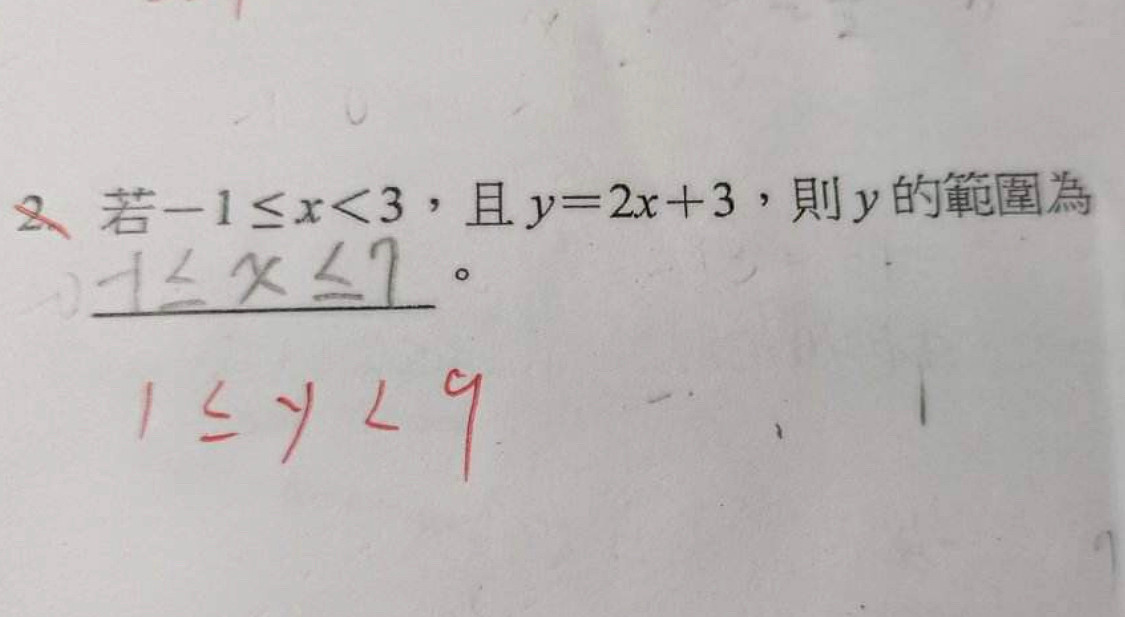 2. 若－1≤x<3，且 y＝2x＋3，則 y 的範圍為
-1≤ x ≤7 。
1 ≤ y < 9